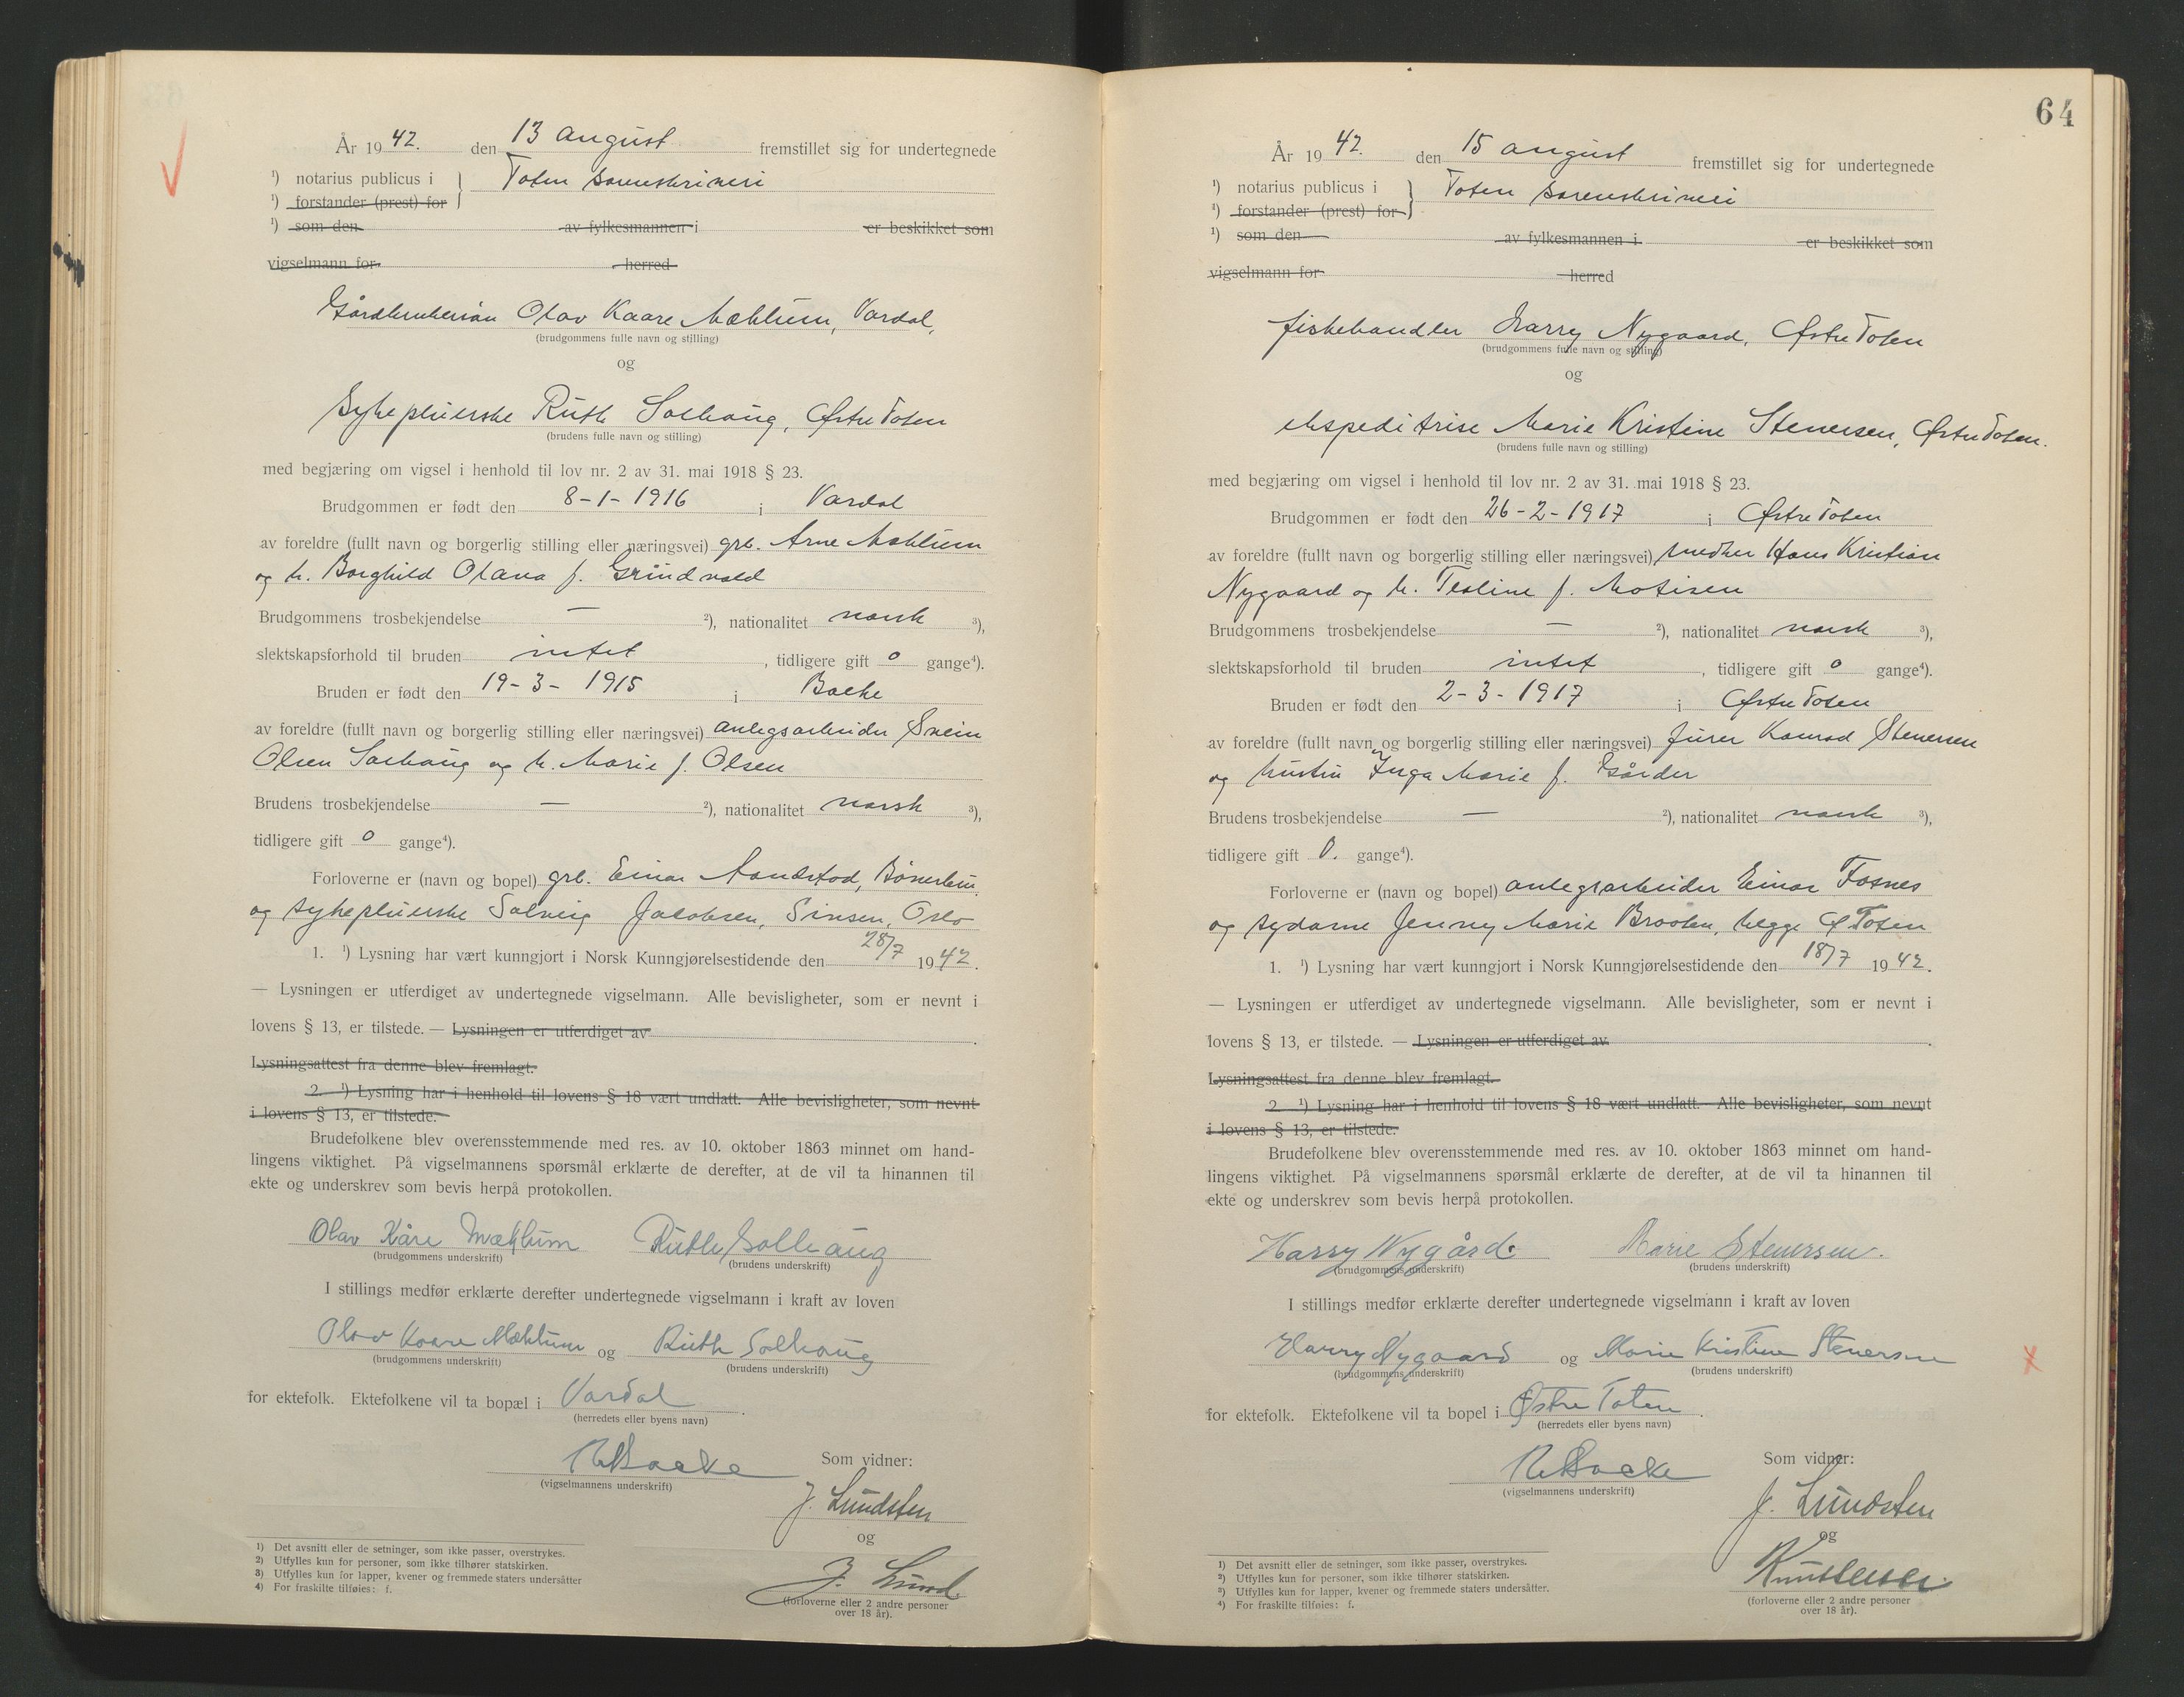 År 19 42. den 13 august fremstillet sig for undertegnede
¹) notarius publicus i } Toten sorenskriveri
¹) forstander (prest) for
¹) som den av fylkesmannen i er beskikket som
vigselmann for herred
Olav Kaare Mæhlum, Vardal,
(brudgommens fulle navn og stilling)
og
Sykepleierske Ruth Solhaug, Østre Toten
(brudens fulle navn og stilling)
med begjæring om vigsel i henhold til lov nr. 2 av 31. mai 1918 § 23.
Brudgommen er født den 8-1-1916 i Vardal
av foreldre (fullt navn og borgerlig stilling eller næringsvei) grb. Arne Mæhlum
og h. Borghild Olava f. Grindvold
Brudgommens trosbekjendelse — ²), nationalitet norsk ³),
slektskapsforhold til bruden intet , tidligere gift 0 gange⁴).
Bruden er født den 19-3-1915 i
av foreldre (fullt navn og borgerlig stilling eller næringsvei) anlegsarbeider Svein
Olsen Solhaug og h. Marie f. Olsen
Brudens trosbekjendelse — ²), nationalitet norsk ³),
tidligere gift 0 gange⁴).
Forloverne er (navn og bopel) grb. Einar
og sykepleierske Solveig Jacobsen, Sinsen, Oslo
1. ¹) Lysning har vært kunngjort i Norsk Kunngjørelsestidende den 28/7 1942.
— Lysningen er utferdiget av undertegnede vigselmann. Alle bevisligheter, som er nevnt i
lovens § 13, er tilstede. — Lysningen er utferdiget av .
Lysningsattest fra denne blev fremlagt.
2. ¹) Lysning har i henhold til lovens § 18 vært undlatt. Alle bevisligheter, som nevnt
i lovens § 13, er tilstede.
Brudefolkene blev overensstemmende med res. av 10. oktober 1863 minnet om hand-
lingens viktighet. På vigselmannens spørsmål erklærte de derefter, at de vil ta hinannen til
ekte og underskrev som bevis herpå protokollen.
Olav Kåre Mæhlum Ruth Solhaug
(brudgommens underskrift) (brudens underskrift)
I stillings medfør erklærte derefter undertegnede vigselmann i kraft av loven
Olav Kaare Mæhlum og Ruth Solhaug
(brudgommens underskrift) (brudens underskrift)
for ektefolk. Ektefolkene vil ta bopæl i Vardal .
(herredets eller byens navn)
Som vidner:
(vigselmannens underskrift)
J. Lundsten
og
J. Lund.
(forloverne eller 2 andre personer
over 18 år).
1) Det avsnitt eller de setninger, som ikke passer, overstrykes.
2) Utfylles kun for personer, som ikke tilhører statskirken.
3) Utfylles kun for lapper, kvener og fremmede staters undersåtter
4) For fraskilte tilføies: f.
64
År 19 42. den 15 august fremstillet sig for undertegnede
¹) notarius publicus i } Toten sorenskriveri
²) forstander (prest) for
¹) som den av fylkesmannen i er beskikket som
vigselmann for herred
fiskehandler Harry Nygaard, Østre Toten
(brudgommens fulle navn og stilling)
og
ekspeditrise Marie Kristine Stenersen, Østre Toten.
(brudens fulle navn og stilling)
med begjæring om vigsel i henhold til lov nr. 2 av 31. mai 1918 § 23.
Brudgommen er født den 26-2-1917 i Østre Toten
av foreldre (fullt navn og borgerlig stilling eller næringsvei) Hans Kristian
Nygaard og h. f.
Brudgommens trosbekjendelse — ²), nationalitet norsk ³),
slektskapsforhold til bruden intet , tidligere gift 0 gange⁴).
Bruden er født den 2-3-1917 i Østre Toten
av foreldre (fullt navn og borgerlig stilling eller næringsvei) furer Konrad Stenersen
og hustru Inga Marie f. Gårder
Brudens trosbekjendelse — ²), nationalitet norsk ³),
tidligere gift 0. gange⁴).
Forloverne er (navn og bopel) anlegsarbeider Einar Fosnes
og sydame Jenny Marie Braaten, begge Ø Toten
1. ¹) Lysning har vært kunngjort i Norsk Kunngjørelsestidende den 18/7 19 42.
— Lysningen er utferdiget av undertegnede vigselmann. Alle bevisligheter, som er nevnt i
lovens § 13, er tilstede. — Lysningen er utferdiget av .
Lysningsattest fra denne blev fremlagt.
2. ¹) Lysning har i henhold til lovens § 18 vært undlatt. Alle bevisligheter, som nevnt
i lovens § 13, er tilstede.
Brudefolkene blev overensstemmende med res. av 10. oktober 1863 minnet om hand-
lingens viktighet. På vigselmannens spørsmål erklærte de derefter, at de vil ta hinannen til
ekte og underskrev som bevis herpå protokollen.
Harry Nygård. Marie Stenersen.
(brudgommens underskrift) (brudens underskrift)
I stillings medfør erklærte derefter undertegnede vigselmann i kraft av loven
Harry Nygaard og Marie Kristine Stenersen
(brudgommens underskrift) (brudens underskrift)
for ektefolk. Ektefolkene vil ta bopel i Østre Toten .
(herredets eller byens navn)
Som vidner:
(vigselmannens underskrift)
J. Lundsten
og
(forloverne eller 2 andre personer
over 18 år).
1) Det avsnitt eller de setninger, som ikke passer, overstrykes.
2) Utfylles kun for personer, som ikke tilhører statskirken.
3) Utfylles kun for lapper, kvener og fremmede staters undersåtter.
4) For fraskilte tilføies: f.